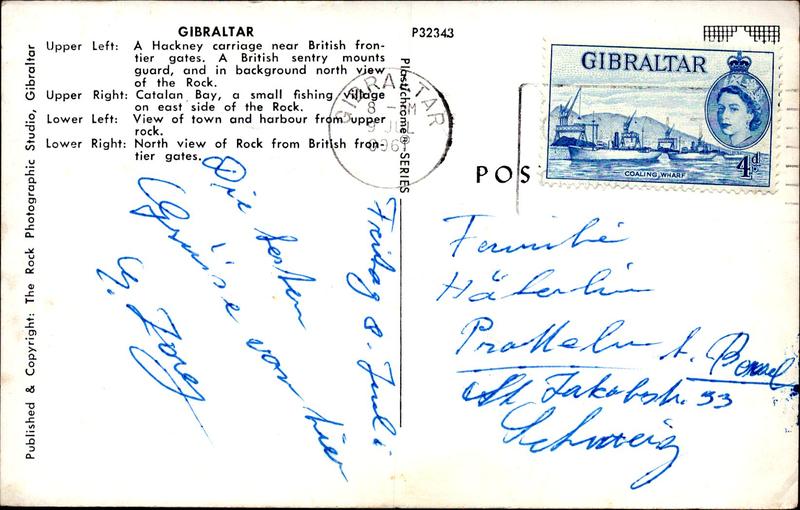 GIBRALTAR
Upper Left: A Hackney carriage near British fron-
tier gates. A British sentry mounts
guard, and in background north view
of the Rock.
Upper Right: Catalan Bay, a small fishing village
on east side of the Rock.
Lower Left: View of town and harbour from upper
rock.
Lower Right: North view of Rock from British fron-
tier gates.
Published & Copyright: The Rock Photographic Studio, Gibraltar
P32343
Plastichrome® SERIES
GIBRALTAR
POS
GIBRALTAR
COALING WHARF
4d
Freitag 8. Juli
Die besten
Grüsse von hier
Familie
Häberlin
Pratteln b. Basel
St. Jakobstr. 33
Schweiz